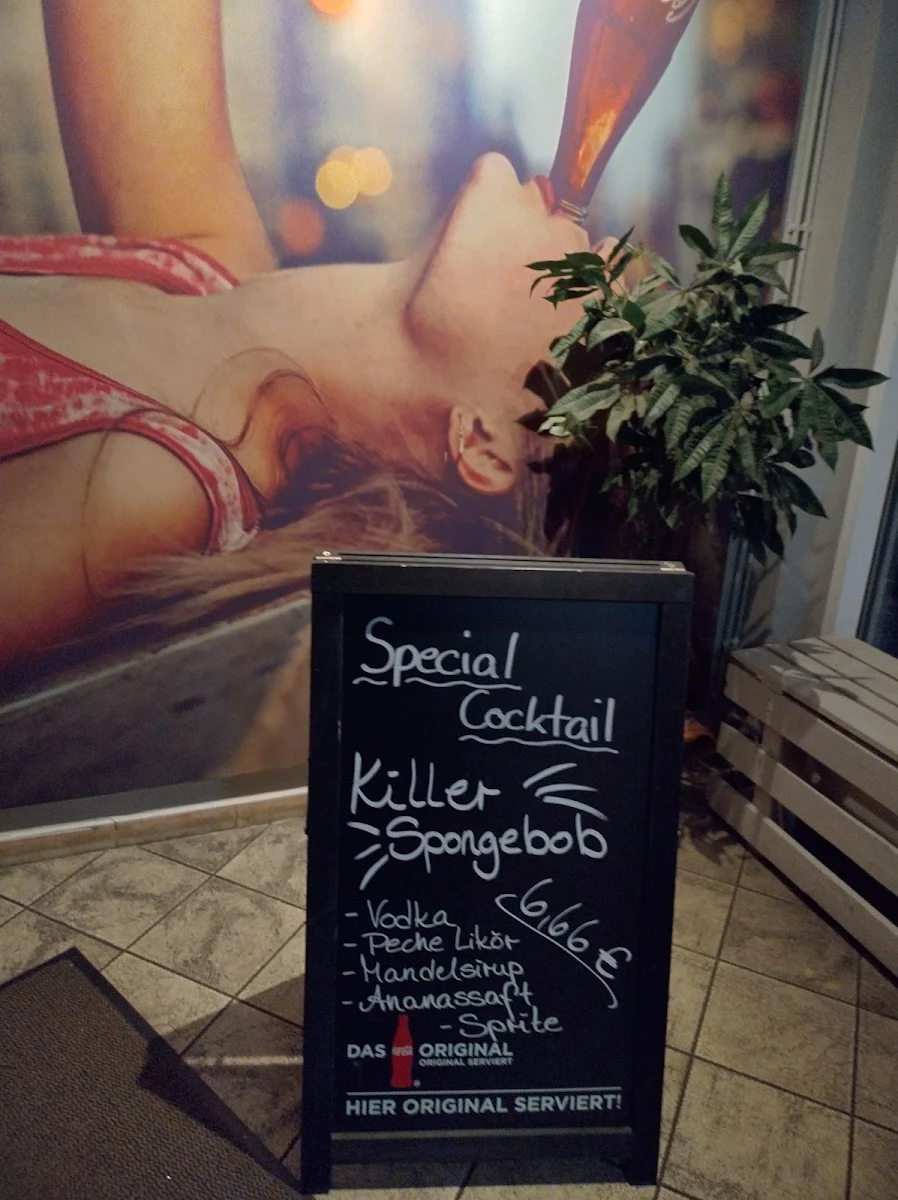 Special
Cocktail
Killer
Spongebob
6,66 €
- Vodka
- Peche Likör
- Mandelsirup
- Ananassaft
- Sprite
DAS Coca-Cola ORIGINAL
ORIGINAL SERVIERT
HIER ORIGINAL SERVIERT!